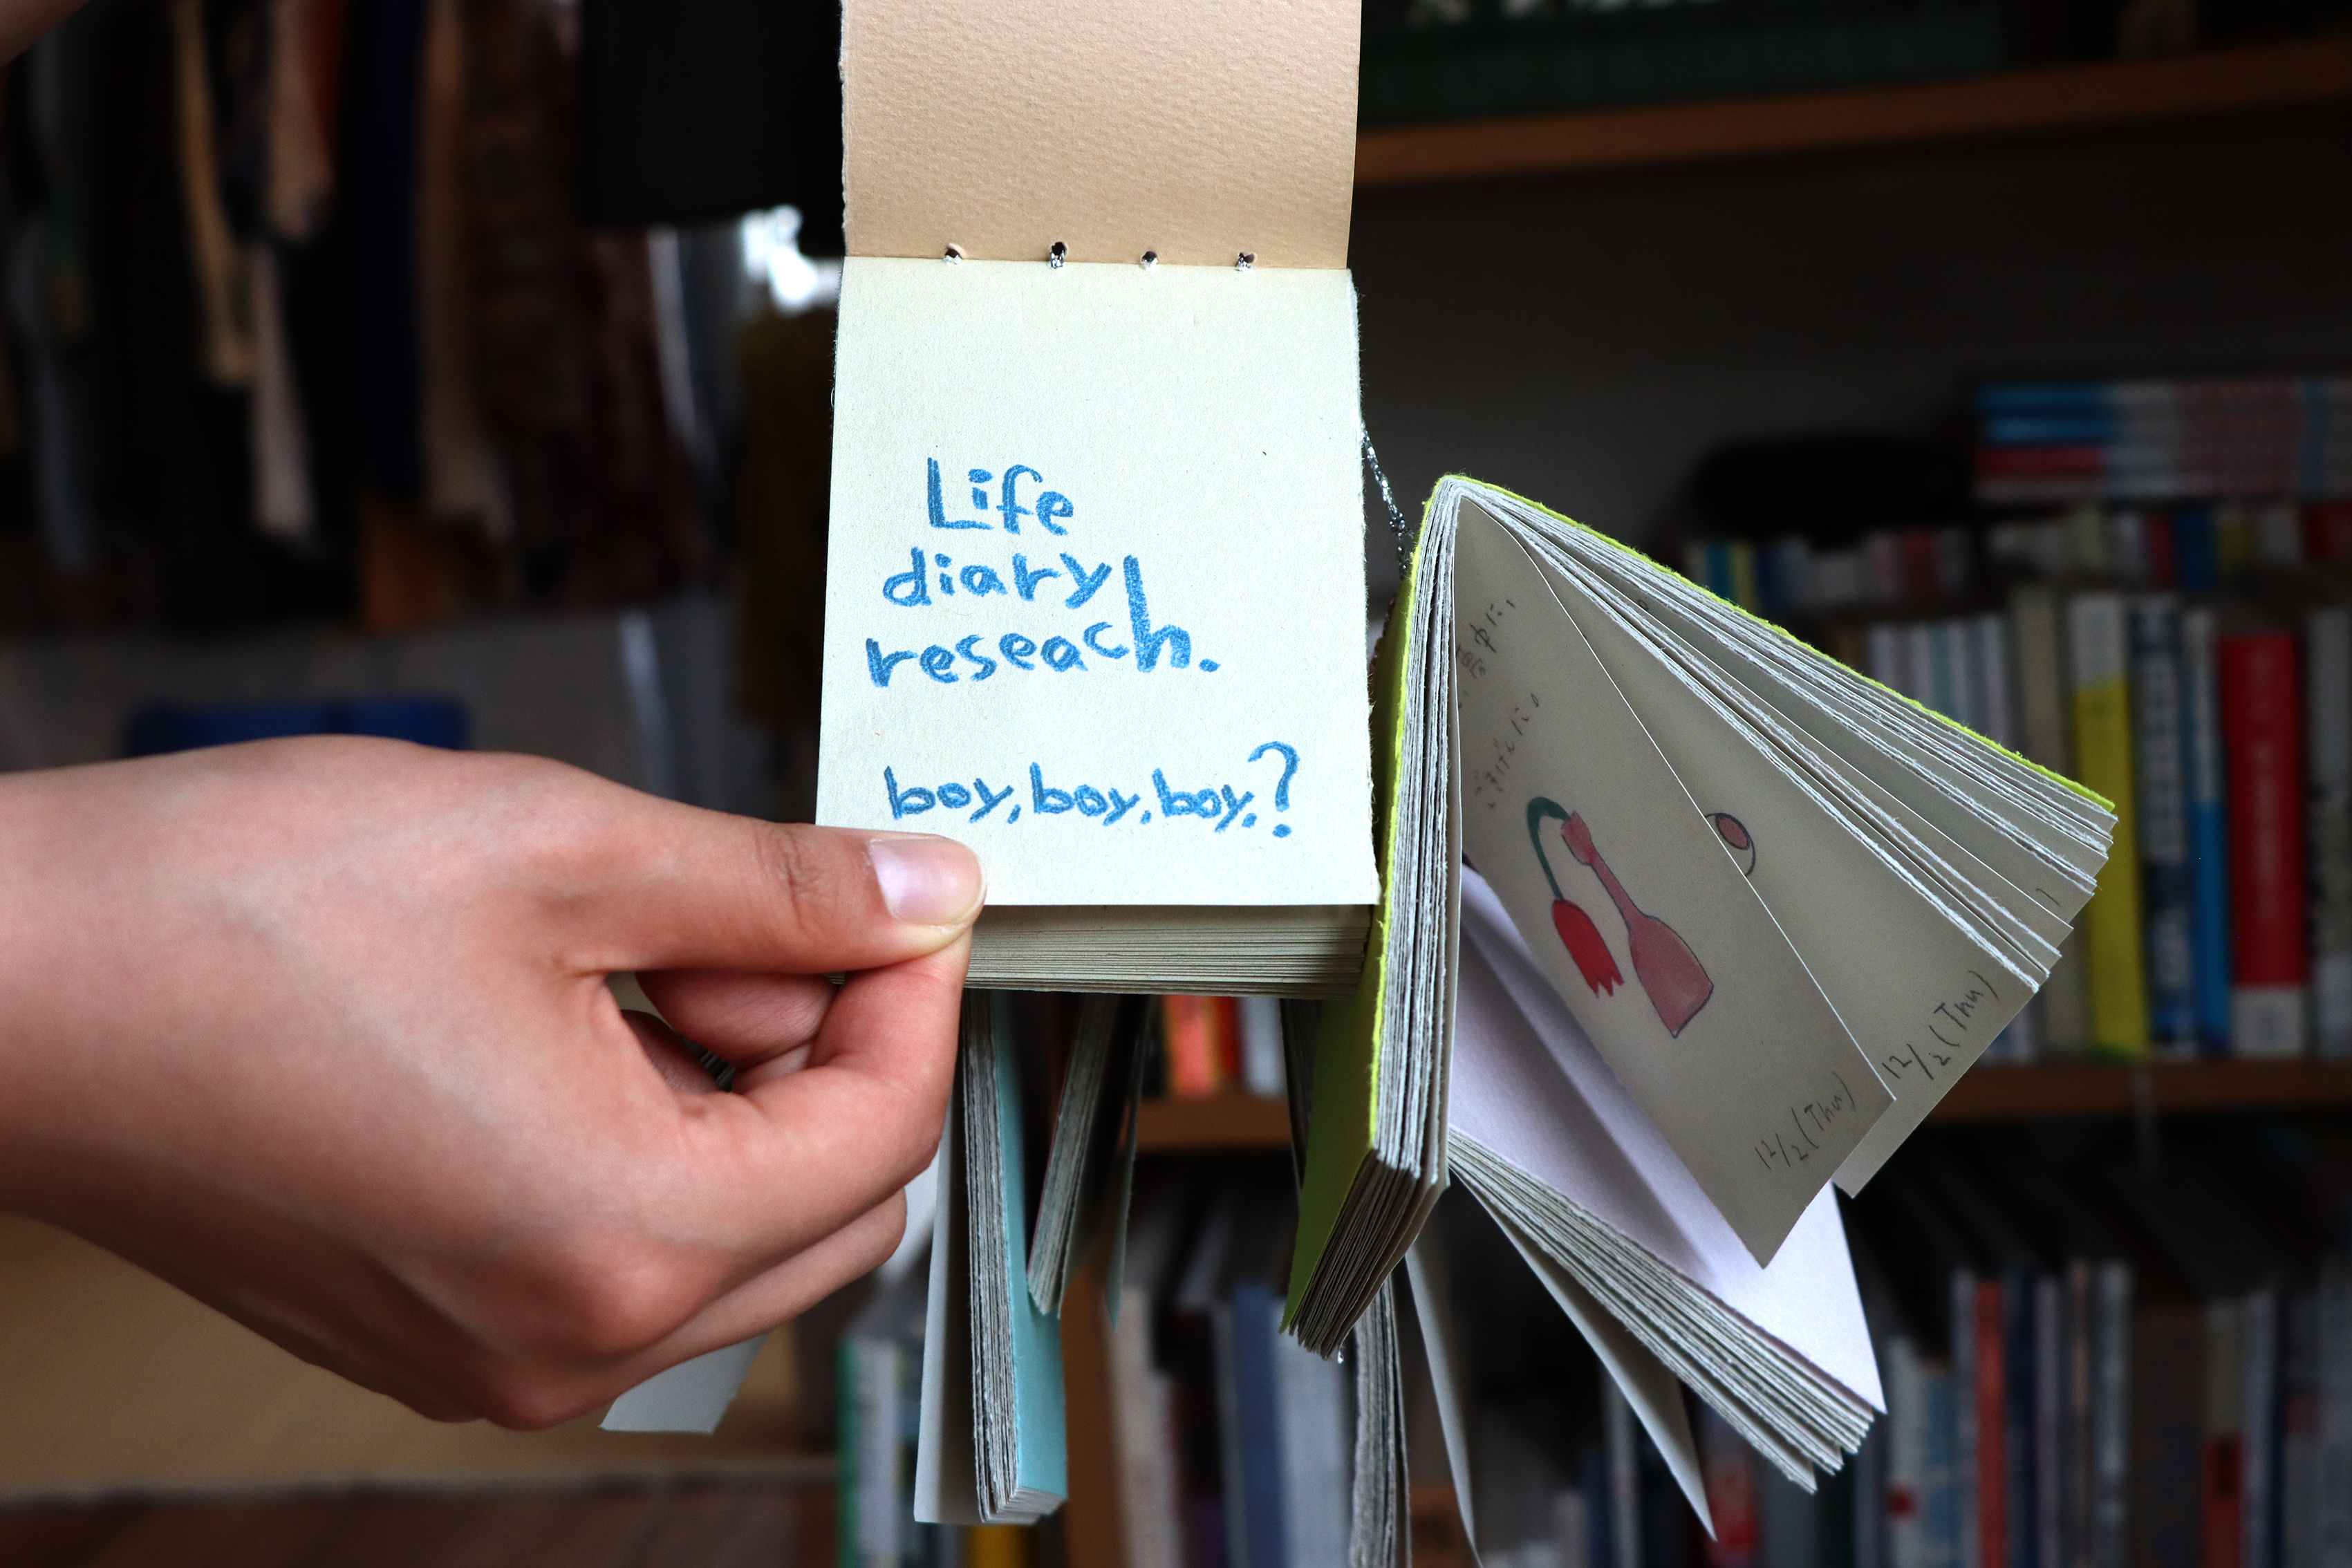 Life
diary
reseach.
boy, boy, boy,?
12/2(Thu)
12/2(Thu)